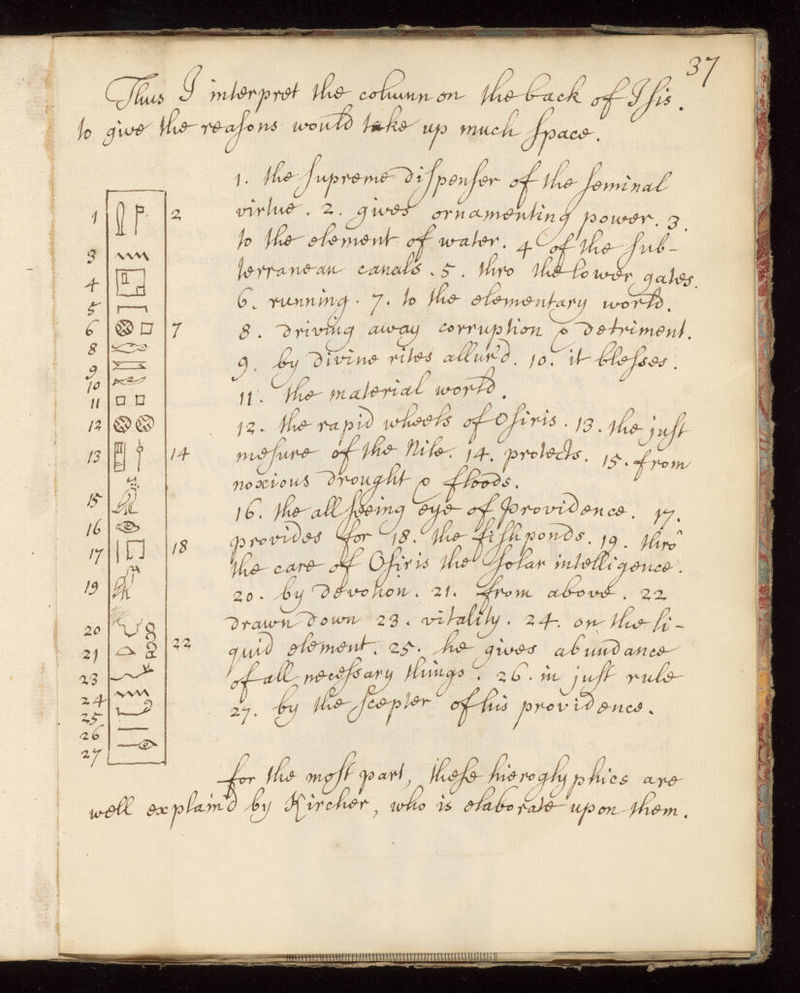 37
Thus I interpret the column on the back of Isis.
to give the reasons would take up much space.
1. the supreme dispenser of the seminal
virtue. 2. gives ornamenting power. 3.
to the element of water. 4 of the sub-
terranean canals. 5. thro the lower gates.
6. running. 7. to the elementary world.
8. driving away corruption & detriment.
9. by divine rites allur'd. 10. it blesses.
11. the material world.
12. the rapid wheels of Osiris. 13. the just
mesure of the Nile. 14. protects. 15. from
noxious drought & floods.
16. the all seeing eye of providence. 17.
provides for 18. the fishponds. 19. thro
the care of Osiris the solar intelligence.
20. by devotion. 21. from above. 22
drawn down 23. vitality. 24. on the li-
quid element. 25. he gives abundance
of all necessary things. 26. in just rule
27. by the scepter of his providence.
1 2
3
4
5
6 7
8
9
10
11
12
13 14
15
16
17 18
19
20
21 22
23
24
25
26
27
for the most part, these hieroglyphics are
well explain'd by Kircher, who is elaborate upon them.